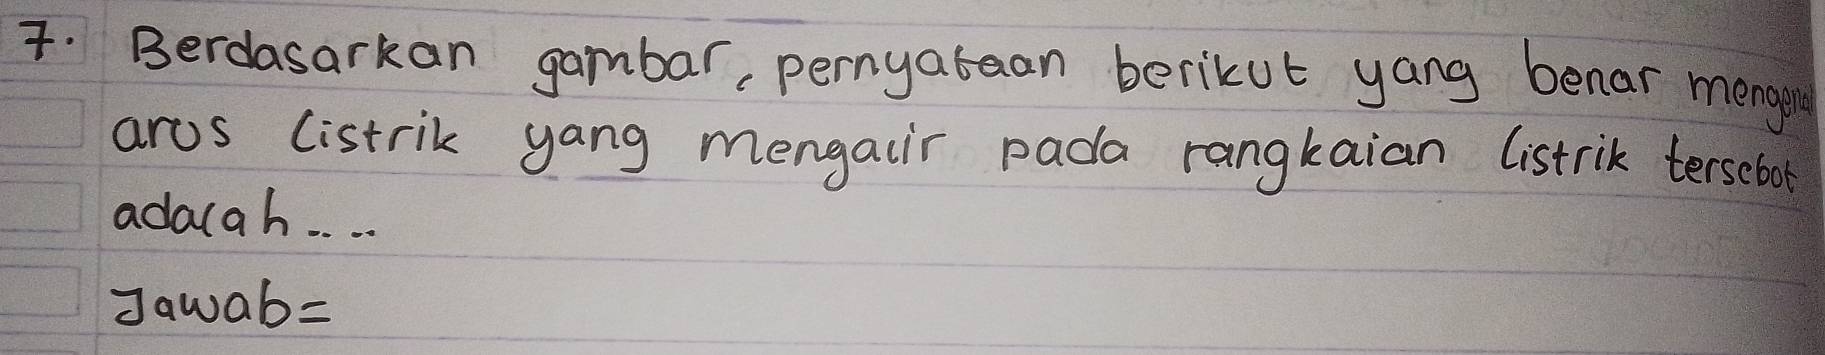 7. Berdasarkan gambar, pernyataan berikut yang benar mengenai
arus listrik yang mengalir pada rangkaian listrik tersebut
adalah....
Jawab=